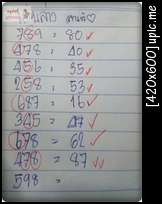 789 = 80
478 = 40
456 = 35
258 = 53
687 = 16
345 = 47
678 = 62
478 = 87
598 =
[420x600]upic.me